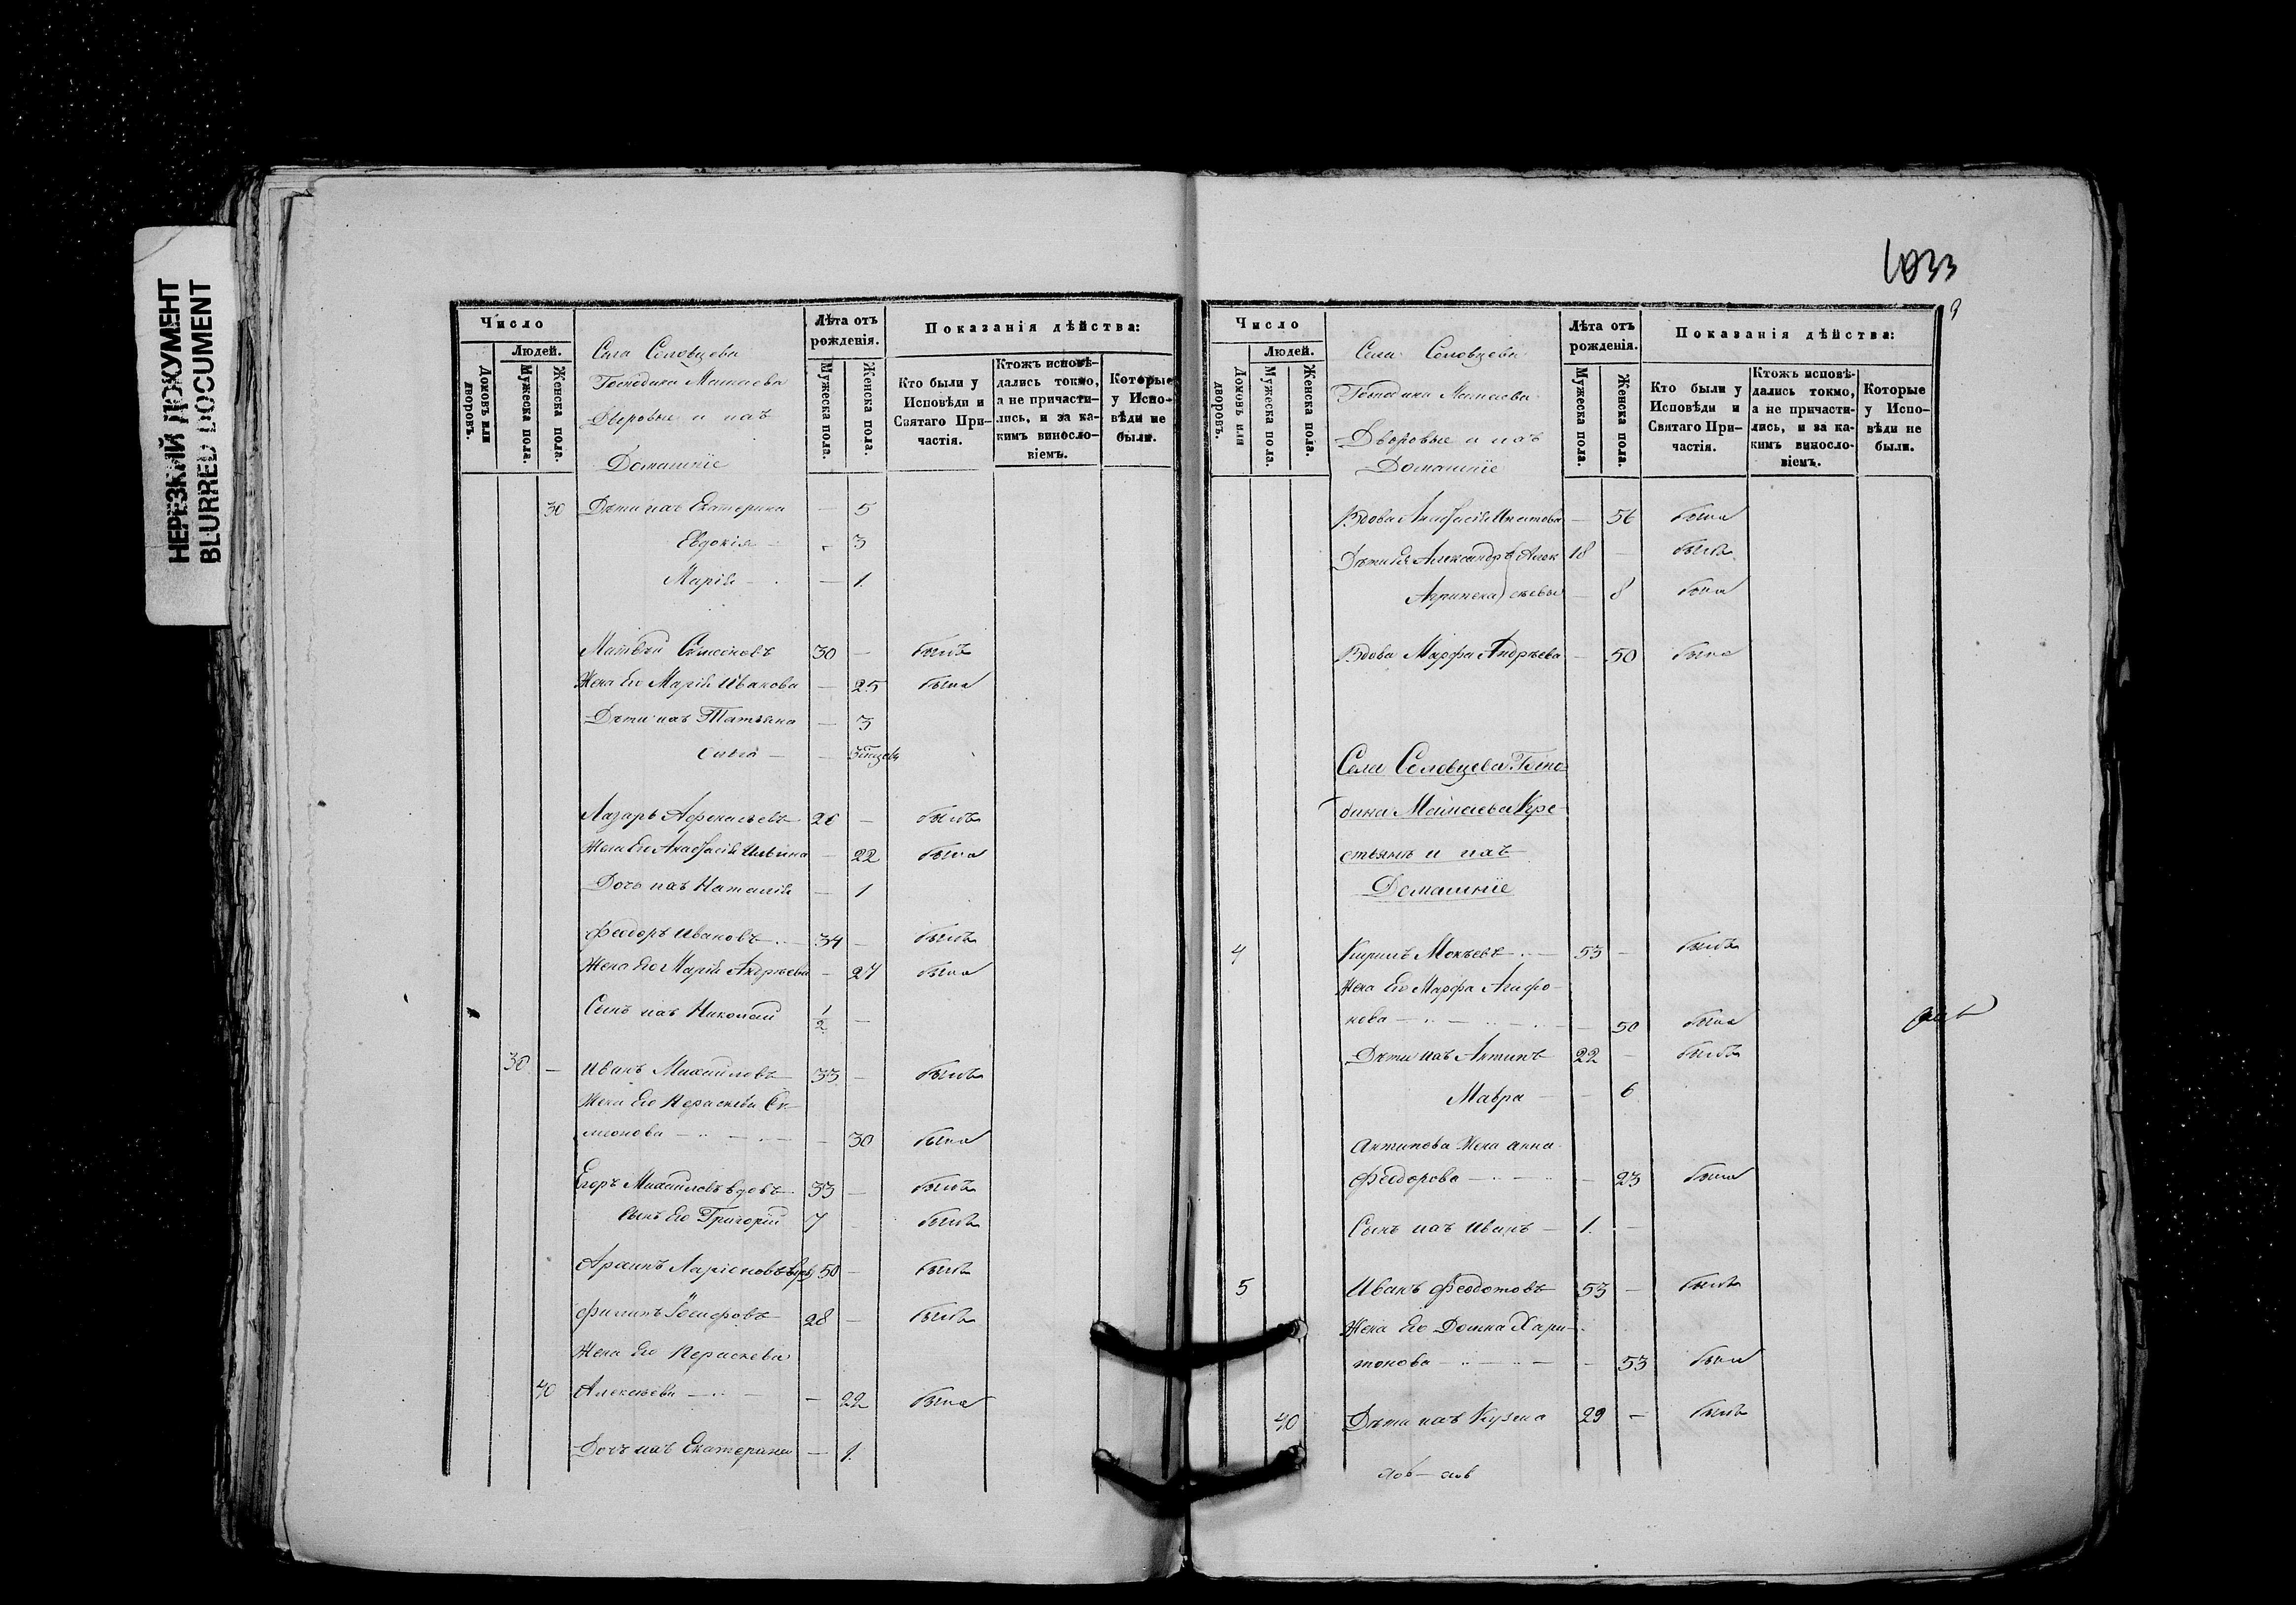 НЕРЕЗКИЙ ДОКУМЕНТ
BLURRED DOCUMENT
Число
Людей.
Домовъ или дворовъ.
Мужеска пола.
Женска пола.
Села Соловцева
Господина
Дворовые и ихъ
Домашніе
Лѣта отъ рожденія.
Мужеска пола.
Женска пола.
Показанія дѣйства:
Кто были у Исповѣди и Святаго Причастія.
Ктожъ исповѣдались токмо, а не причастились, и за какимъ винословіемъ.
Которые у Исповѣди не были.
30 Дѣти ихъ Екатерина — 5
Евдокія — 3
Марія — 1.
Матвѣй Симеоновъ 30 — былъ
Жена Его Марія Иванова — 25 была
Дѣти ихъ Татьяна — 3
—
Лазарь Афанасьевъ 26 — былъ
Жена Его Анастасія Ильина — 22 была
Дочь ихъ Наталія — 1
Феодоръ Ивановъ 34 — былъ
Жена Его Марія Андреева — 24 была
Сынъ ихъ Николай 1/2 —
30 — Иванъ Михайловъ 33 — былъ
Жена Его Параскева Си-
меонова — 30 была
Егоръ Михайловъ вдовъ 33 — былъ
Сынъ Его Григорій 7 — былъ
Архипъ Ларіоновъ 50 — былъ
Филипъ Іосифовъ 28 — былъ
Жена Его Параскева
40 Алексѣева — 22 была
Дочь ихъ Екатерина — 1.
1033
9
Число
Людей.
Домовъ или дворовъ.
Мужеска пола.
Женска пола.
Села Соловцева
Господина
Дворовые и ихъ
Домашніе
Лѣта отъ рожденія.
Мужеска пола.
Женска пола.
Показанія дѣйства:
Кто были у Исповѣди и Святаго Причастія.
Ктожъ исповѣдались токмо, а не причастились, и за какимъ винословіемъ.
Которые у Исповѣди не были.
Вдова Анастасія Ипатова — 56 была
Дѣти Ея Александръ Алек 18 — былъ
Агрипена сѣевы — 8 была
Вдова Марфа Андреева — 50 была
Села Соловцева Госпо-
дина Кре-
стьянъ и ихъ
Домашніе
4 Кирилъ Мокѣевъ 53 — былъ
Жена Его Марфа Агафо-
нова — 50 была
Дѣти ихъ Антипъ 22 — былъ
Мавра — 6
Антипова Жена Анна
Феодорова — 23 была
Сынъ ихъ Иванъ — 1. —
5 Иванъ Феодотовъ 53 — былъ
Жена Его Домна Хари-
тонова — 53 была
40 Дѣти ихъ Кузма 29 — былъ